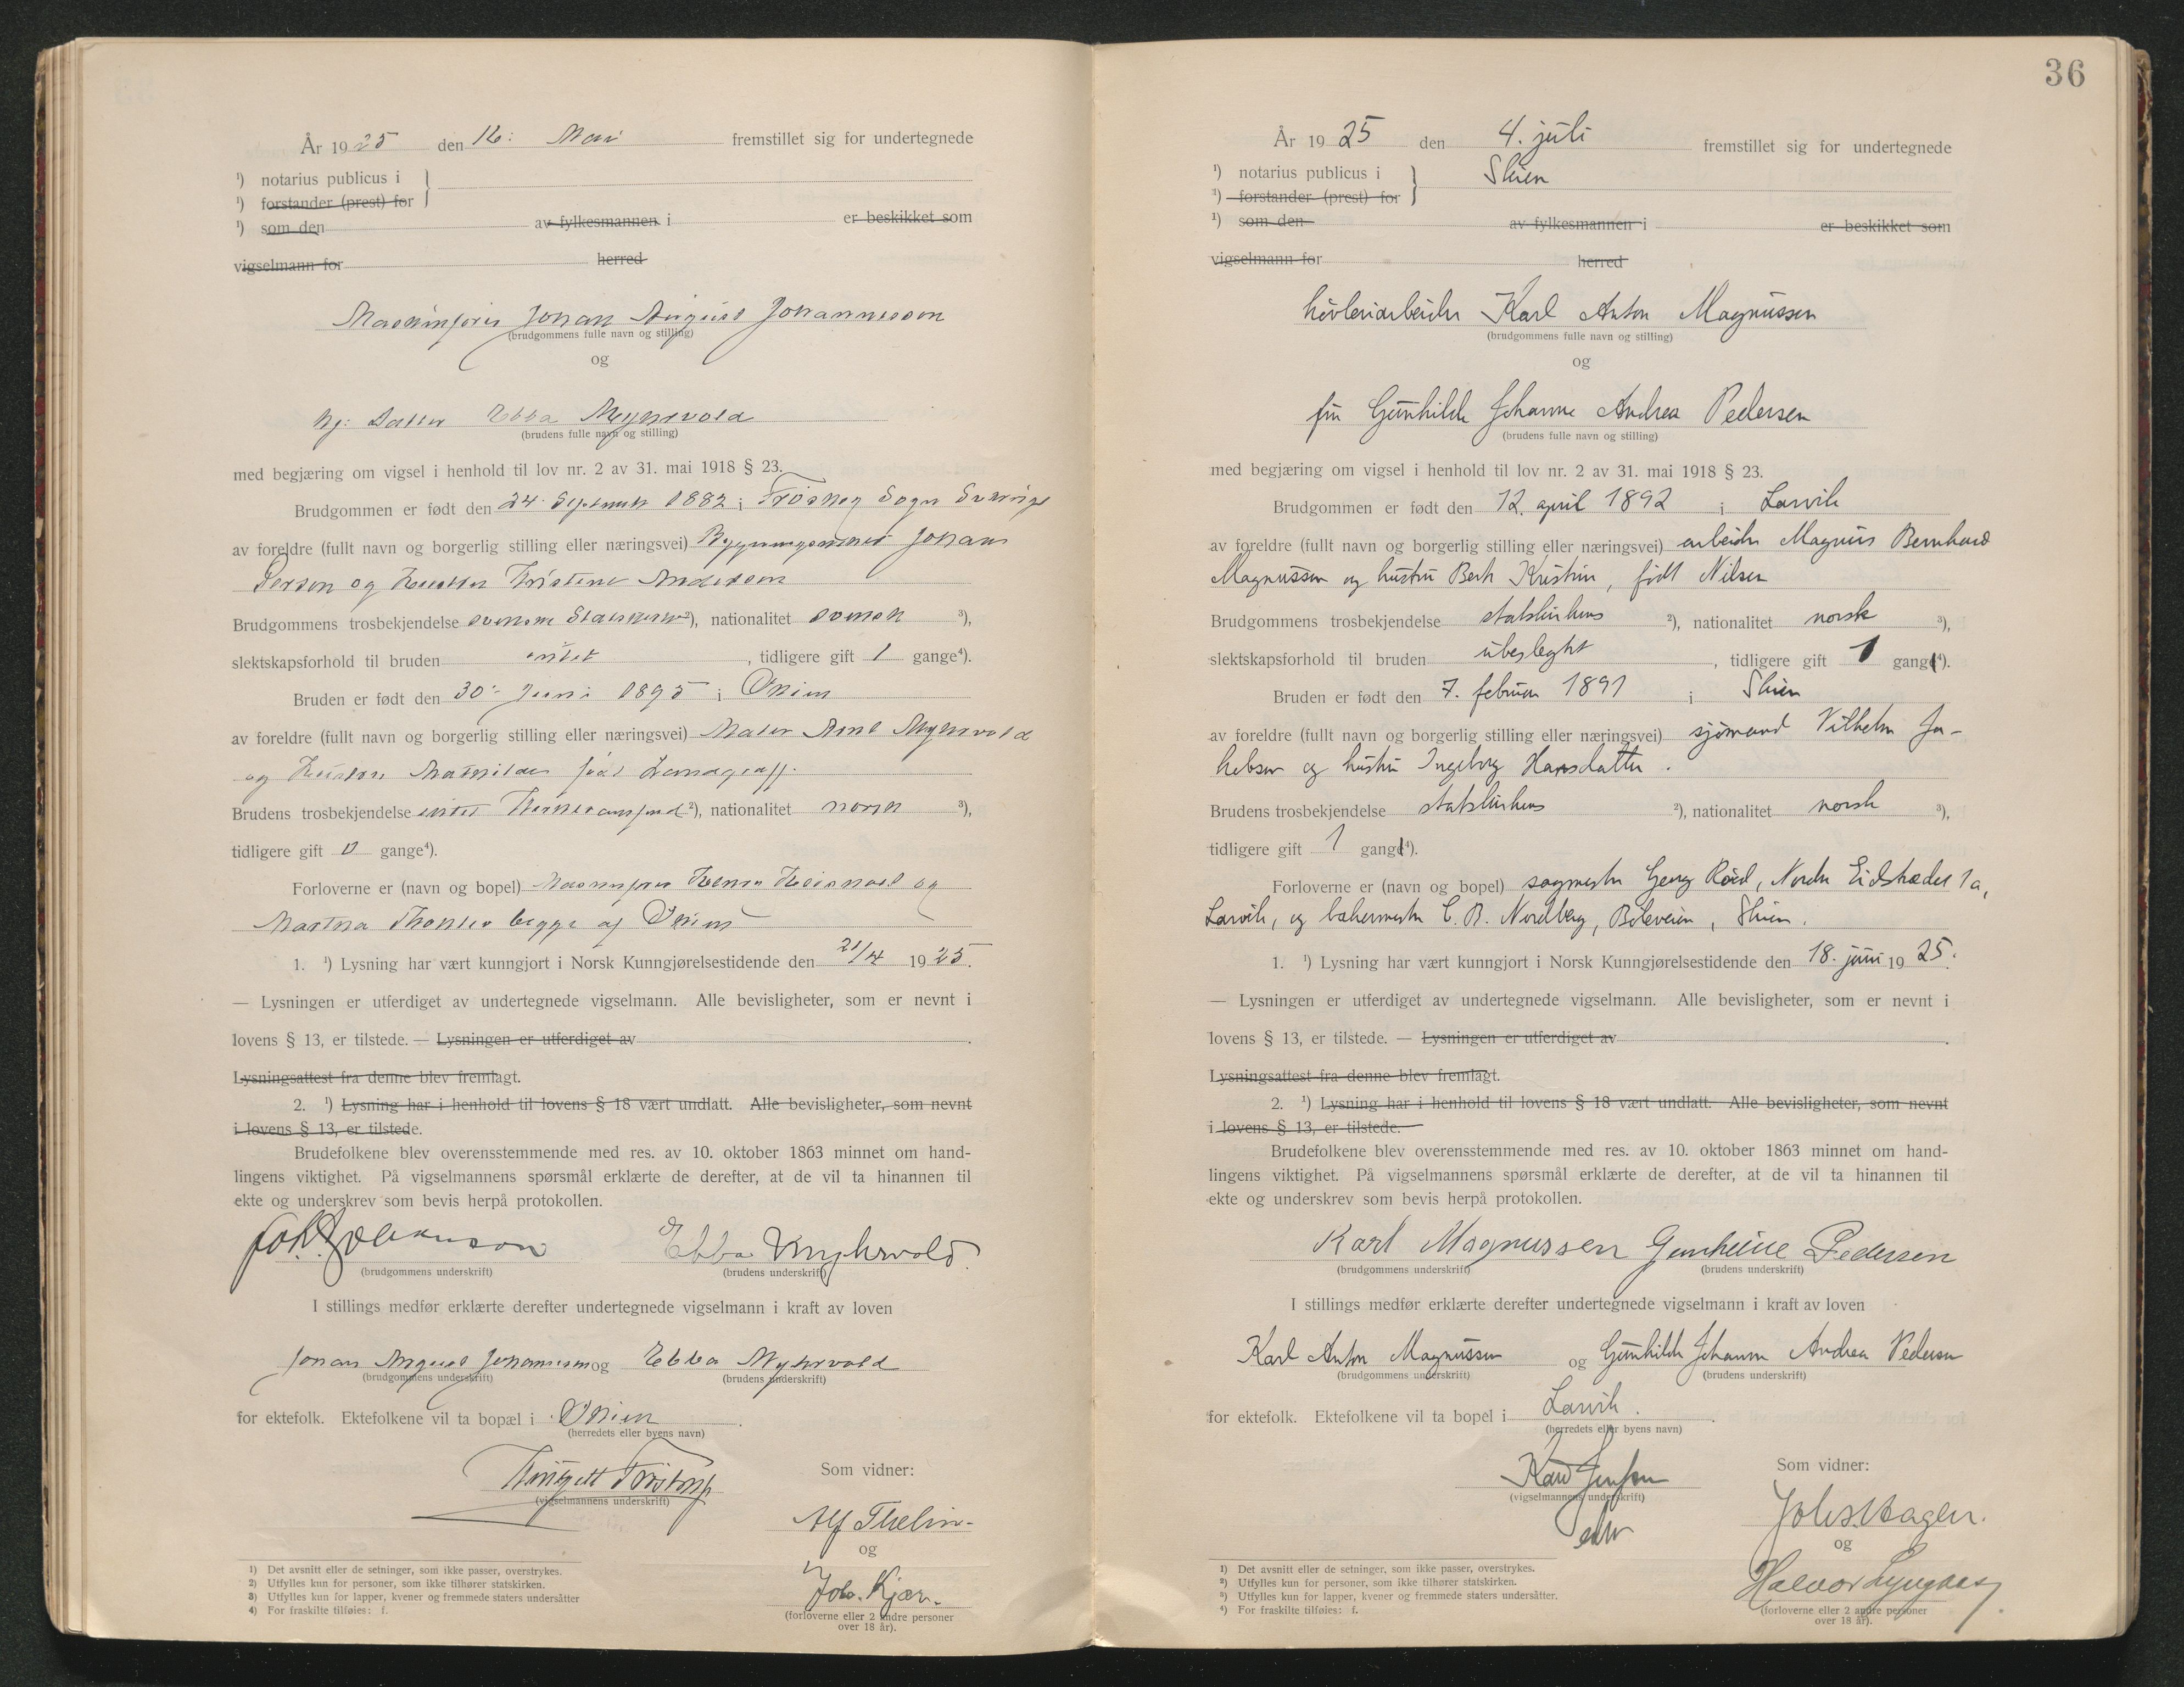 År 1925 den 16: Mai fremstillet sig for undertegnede
¹) notarius publicus i
¹) forstander (prest) for
¹) som den av fylkesmannen i er beskikket som
vigselmann for herred
Johan August Johannesson
(brudgommens fulle navn og stilling)
og
Ebba Myhrvold
(brudens fulle navn og stilling)
med begjæring om vigsel i henhold til lov nr. 2 av 31. mai 1918 § 23.
Brudgommen er født den 24. September 1882 i Sogn Sverrige
av foreldre (fullt navn og borgerlig stilling eller næringsvei) Johans
Person og Hustru Kristine Anderson
Brudgommens trosbekjendelse svenske Statskirke ²), nationalitet svensk ³),
slektskapsforhold til bruden intet, tidligere gift 1 gange⁴).
Bruden er født den 30: Juni 1895 i Skien
av foreldre (fullt navn og borgerlig stilling eller næringsvei) Maler Myhrvold
og Hustru Mathilde født
Brudens trosbekjendelse intet Kirkesamfund ²), nationalitet norsk ³),
tidligere gift 0 gange⁴).
Forloverne er (navn og bopel) og
Martha begge af Skien
1. ¹) Lysning har vært kunngjort i Norsk Kunngjørelsestidende den 21/4 1925.
— Lysningen er utferdiget av undertegnede vigselmann. Alle bevisligheter, som er nevnt i
lovens § 13, er tilstede. — Lysningen er utferdiget av .
Lysningsattest fra denne blev fremlagt.
2. ¹) Lysning har i henhold til lovens § 18 vært undlatt. Alle bevisligheter, som nevnt
i lovens § 13, er tilstede.
Brudefolkene blev overensstemmende med res. av 10. oktober 1863 minnet om hand-
lingens viktighet. På vigselmannens spørsmål erklærte de derefter, at de vil ta hinannen til
ekte og underskrev som bevis herpå protokollen.
Ebba Myhrvold.
(brudgommens underskrift) (brudens underskrift)
I stillings medfør erklærte derefter undertegnede vigselmann i kraft av loven
Johan August Johannesson og Ebba Myhrvold
(brudgommens underskrift) (brudens underskrift)
for ektefolk. Ektefolkene vil ta bopæl i Skien.
(herredets eller byens navn)
Som vidner:
(vigselmannens underskrift)
Alf Thelin
og
Joh. Kjær.
(forloverne eller 2 andre personer
over 18 år).
1) Det avsnitt eller de setninger, som ikke passer, overstrykes.
2) Utfylles kun for personer, som ikke tilhører statskirken.
3) Utfylles kun for lapper, kvener og fremmede staters undersåtter
4) For fraskilte tilføies: f.
36
År 1925 den 4. juli fremstillet sig for undertegnede
¹) notarius publicus i Skien
²) forstander (prest) for
¹) som den av fylkesmannen i er beskikket som
vigselmann for herred
høvleriarbeider Karl Anton Magnussen
(brudgommens fulle navn og stilling)
og
fru Gunhilde Johanne Andrea Pedersen
(brudens fulle navn og stilling)
med begjæring om vigsel i henhold til lov nr. 2 av 31. mai 1918 § 23.
Brudgommen er født den 12. april 1892 i Larvik
av foreldre (fullt navn og borgerlig stilling eller næringsvei) arbeider Magnus Bernhard
Magnussen og hustru Kristine, født Nilsen
Brudgommens trosbekjendelse statskirkens ²), nationalitet norsk ³),
slektskapsforhold til bruden ubeslegtet, tidligere gift 1 gang⁴).
Bruden er født den 7. februar 1891 i Skien
av foreldre (fullt navn og borgerlig stilling eller næringsvei) sjømand Vilhelm Ja-
kobsen og hustru Ingeborg Hansdatter.
Brudens trosbekjendelse statskirkens ²), nationalitet norsk ³),
tidligere gift 1 gang⁴).
Forloverne er (navn og bopel) sagmester Georg Røed, Nordre Eidstrædet 1a,
Larvik, og bakermester C. B. Nordberg, Boleveien, Skien.
1. ¹) Lysning har vært kunngjort i Norsk Kunngjørelsestidende den 18. juni 1925.
— Lysningen er utferdiget av undertegnede vigselmann. Alle bevisligheter, som er nevnt i
lovens § 13, er tilstede. — Lysningen er utferdiget av .
Lysningsattest fra denne blev fremlagt.
2. ¹) Lysning har i henhold til lovens § 18 vært undlatt. Alle bevisligheter, som nevnt
i lovens § 13, er tilstede.
Brudefolkene blev overensstemmende med res. av 10. oktober 1863 minnet om hand-
lingens viktighet. På vigselmannens spørsmål erklærte de derefter, at de vil ta hinannen til
ekte og underskrev som bevis herpå protokollen.
Karl Magnussen Pedersen
(brudgommens underskrift) (brudens underskrift)
I stillings medfør erklærte derefter undertegnede vigselmann i kraft av loven
Karl Anton Magnussen og Gunhilde Johanne Andrea Pedersen
(brudgommens underskrift) (brudens underskrift)
for ektefolk. Ektefolkene vil ta bopel i Larvik.
(herredets eller byens navn)
Som vidner:
(vigselmannens underskrift)
Johs. Hagen.
og
Halvor
(forloverne eller 2 andre personer
over 18 år).
¹) Det avsnitt eller de setninger, som ikke passer, overstrykes.
²) Utfylles kun for personer, som ikke tilhører statskirken.
³) Utfylles kun for lapper, kvener og fremmede staters undersåtter.
⁴) For fraskilte tilføies: f.